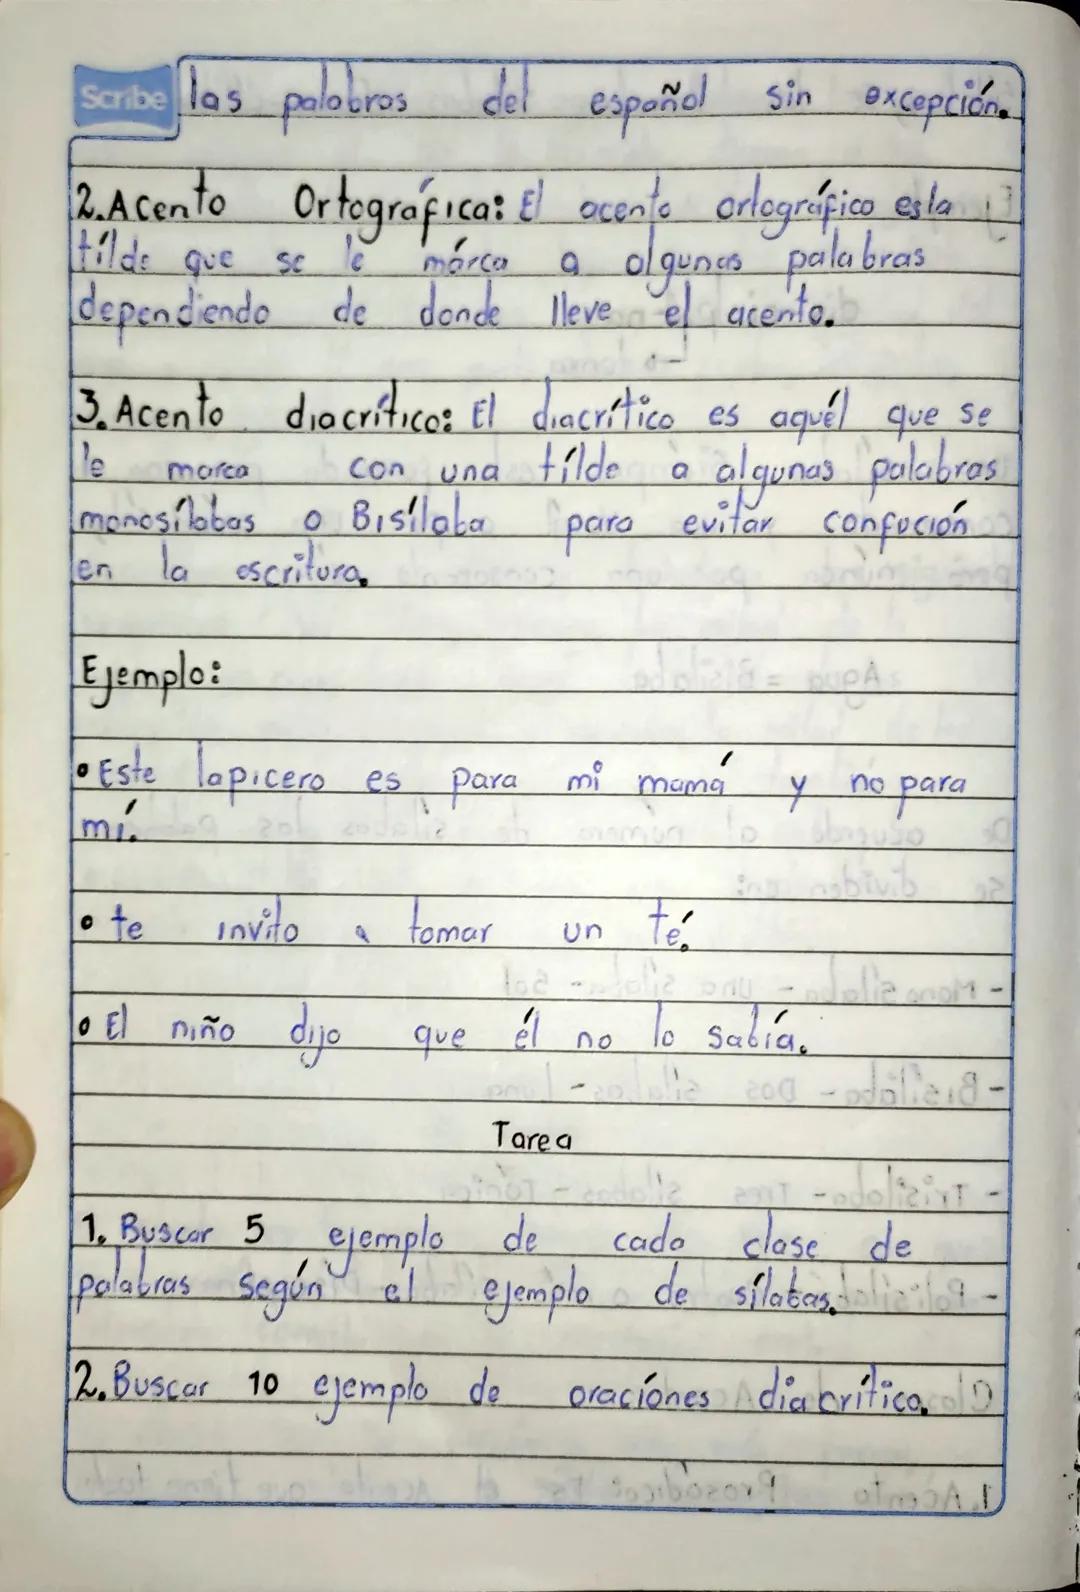 Scribe las palabras del español sin excepción.
2. Acento Ortográfica: El acento ortográfico es la
tílde que se le márca a algunas palabras
dependiendo de donde lleve el acento.
3. Acento diacrítico: El diacrítico es aquél que se
le marca con una tílde a algunas palabras
monosílabas o Bisílaba para evitar confución
en la escritura.
Ejemplo:
• Este lapicero es para mi mamá y no para
mí.
• te invito a tomar un té.
• El niño dijo que él no lo sabía.
Tarea
1. Buscar 5 ejemplo de cada clase de
palabras según el ejemplo de sílabas.
2. Buscar 10 ejemplo de oraciónes diacrítico.